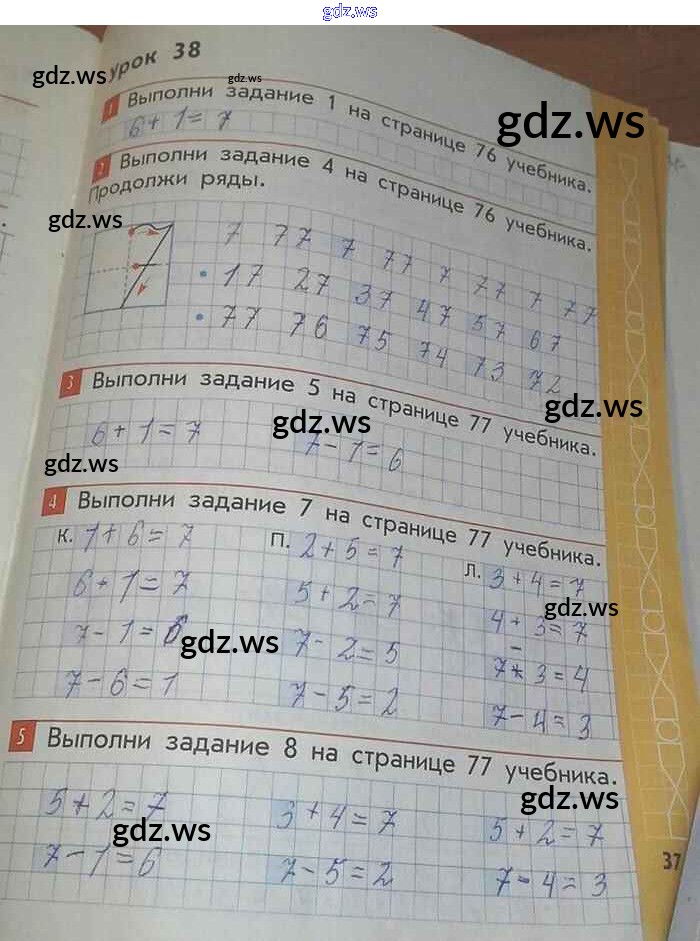 gdz.ws
урок 38
gdz.ws
gdz.ws
1 Выполни задание 1 на странице 76 учебника.
gdz.ws
6 + 1 = 7
2 Выполни задание 4 на странице 76 учебника.
Продолжи ряды.
gdz.ws
7 77 7 77 7 77 7 77
• 17 27 37 47 57 67
• 77 76 75 74 73 72
3 Выполни задание 5 на странице 77 учебника.
gdz.ws
gdz.ws
6 + 1 = 7 7 - 1 = 6
gdz.ws
4 Выполни задание 7 на странице 77 учебника.
К. 1 + 6 = 7 П. 2 + 5 = 7 Л. 3 + 4 = 7
6 + 1 = 7 5 + 2 = 7 4 + 3 = 7
gdz.ws
7 - 1 = 6 7 - 2 = 5 7 - 3 = 4
gdz.ws
7 - 6 = 1 7 - 5 = 2 7 - 4 = 3
5 Выполни задание 8 на странице 77 учебника.
5 + 2 = 7 3 + 4 = 7 5 + 2 = 7
gdz.ws
gdz.ws
7 - 1 = 6 7 - 5 = 2 7 - 4 = 3
37
gdz.ws